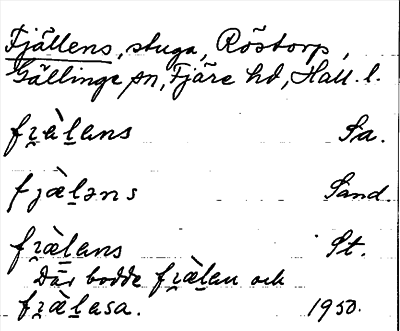 Fjällens, stuga, Röstorp,
Gällinge sn, Fjäre hd, Hall. l.
fi̯æ̀l̠ans Sa.
fjæ̀l̠əns Sand.
fi̯æ̀l̠ans St.
Där bodde fi̯æ̀l̠an och
fi̯æ̀l̠asa. 1950.